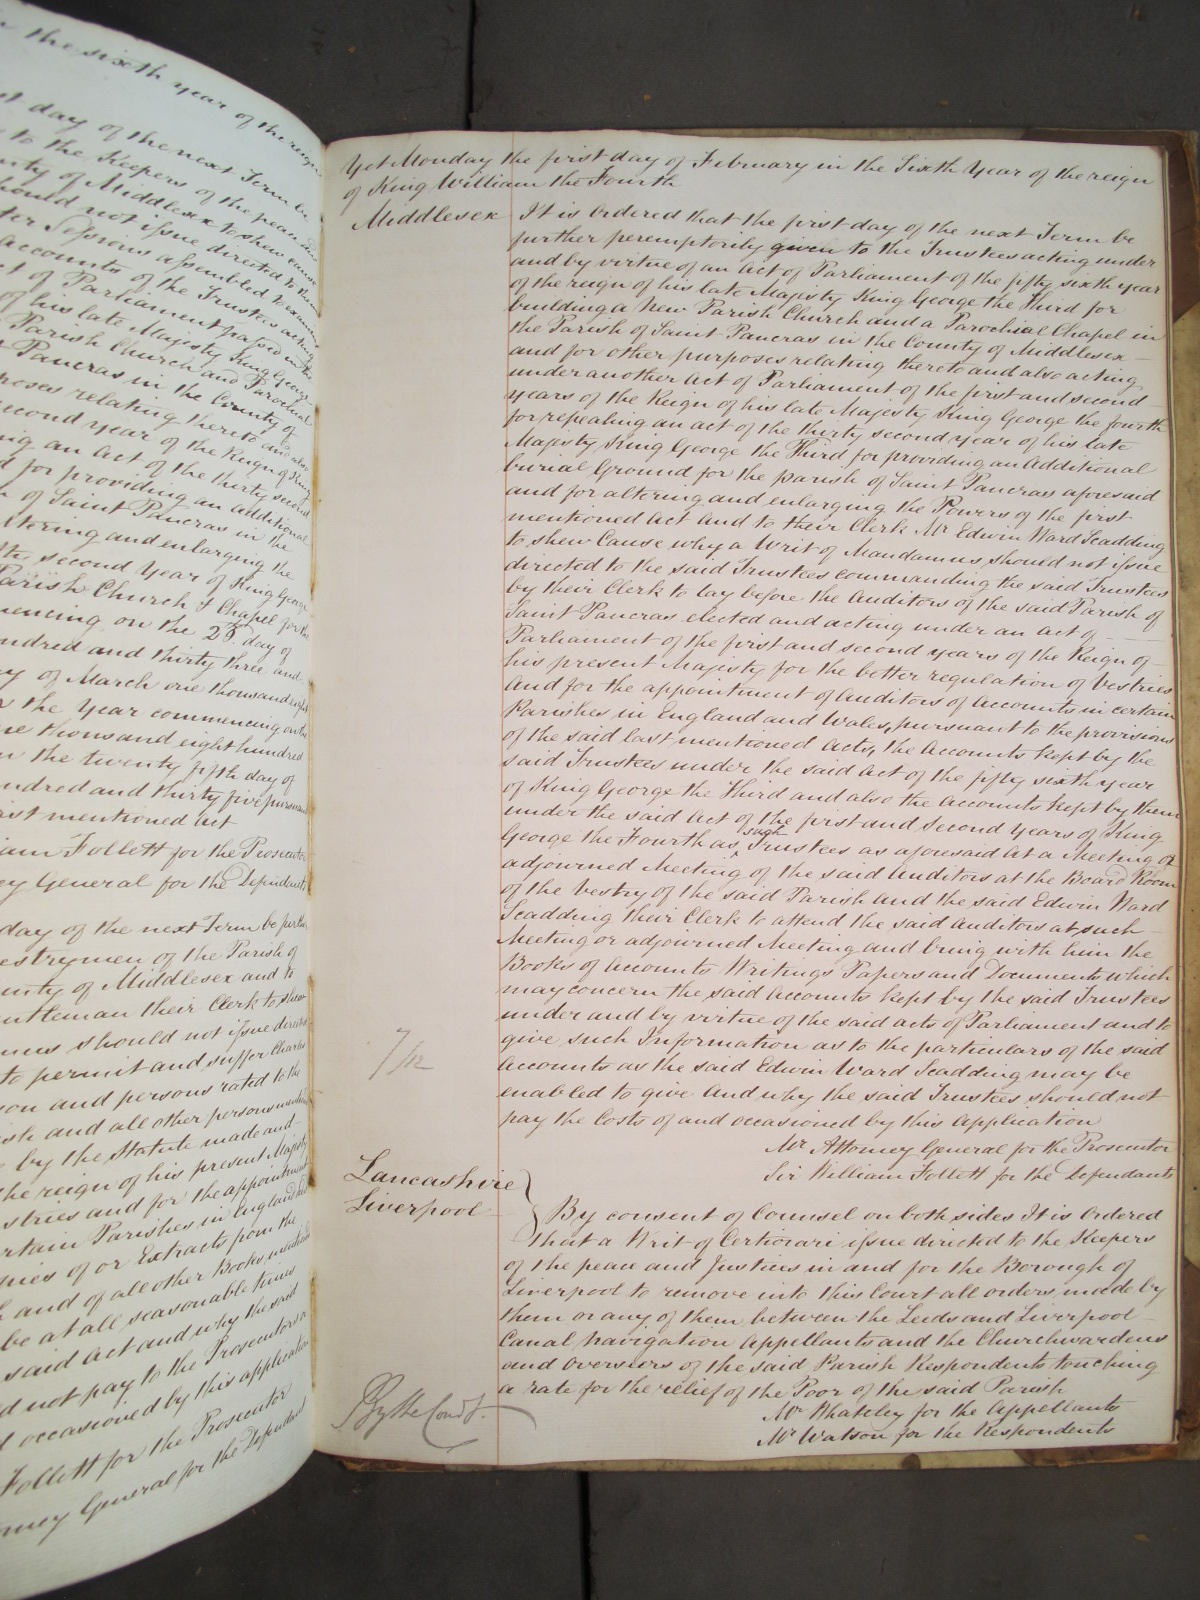 the sixth year of the reign
day of the next Term be
to the Keepers of the peace and
County of Middlesex to shew cause
should not issue directed to them
Sessions assembled to examine
accounts of the Trustees acting
of Parliament passed in the
of his late Majesty King George
Parish Church and Parochial
Pancras in the County of
relating thereto and also
second year of the Reign of King
an Act of the thirty second
for providing an additional
of Saint Pancras in the
altering and enlarging the
second Year of King George
Parish Church & Chapel for the
commencing on the 25th day of
hundred and thirty three and
of March one thousand eight
the Year commencing on the
one thousand eight hundred
the twenty fifth day of
hundred and thirty five pursuant
last mentioned Act
William Follett for the Prosecutor
General for the Defendants
day of the next Term be further
Vestrymen of the Parish of
County of Middlesex and to
Gentleman their Clerk to shew
should not issue directed
to permit and suffer Charles
and persons rated to the
and all other persons
by the Statute made and
the reign of his present Majesty
Vestries and for the appointment
certain Parishes in England and
Copies of or Extracts from the
and of all other Books
be at all seasonable times
said Act and why the said
not pay to the Prosecutors
occasioned by this application
Follett for the Prosecutor
Attorney General for the Defendant
Yet Monday the first day of February in the Sixth Year of the reign
of King William the Fourth
Middlesex It is Ordered that the first day of the next Term be
further peremptorily given to the Trustees acting under
and by virtue of an Act of Parliament of the fifty sixth year
of the reign of his late Majesty King George the Third for
building a New Parish Church and a Parochial Chapel in
the Parish of Saint Pancras in the County of Middlesex
and for other purposes relating thereto and also acting
under another Act of Parliament of the first and second
years of the Reign of his late Majesty King George the fourth
for repealing an act of the thirty second year of his late
Majesty King George the Third for providing an Additional
burial Ground for the parish of Saint Pancras aforesaid
and for altering and enlarging the Powers of the first
mentioned Act and to their Clerk Mr Edwin Ward Scadding
to shew Cause why a Writ of Mandamus should not issue
directed to the said Trustees commanding the said Trustees
by their Clerk to lay before the Auditors of the said Parish of
Saint Pancras elected and acting under an Act of
Parliament of the first and second years of the Reign of
his present Majesty for the better regulation of Vestries
and for the appointment of Auditors of Accounts in certain
Parishes in England and Wales, pursuant to the provisions
of the said last mentioned Acts, the Accounts kept by the
said Trustees under the said Act of the fifty sixth year
of King George the Third and also the Accounts kept by them
under the said Act of the first and Second Years of King
George the Fourth as such Trustees as aforesaid At a Meeting or
adjourned Meeting of the said Auditors at the Board Room
of the Vestry of the said Parish and the said Edwin Ward
Scadding their Clerk to attend the said Auditors at such
Meeting or adjourned Meeting and bring with him the
Books of Accounts Writings Papers and Documents which
may concern the said Accounts kept by the said Trustees
under and by virtue of the said acts of Parliament and to
give such Information as to the particulars of the said
Accounts as the said Edwin Ward Scadding may be
enabled to give And why the said Trustees should not
pay the Costs of and occasioned by this Application
Mr Attorney General for the Prosecutor
Sir William Follett for the Defendants
7/12
Lancashire
Liverpool
By consent of Counsel on both sides It is Ordered
that a Writ of Certiorari issue directed to the Keepers
of the peace and Justices in and for the Borough of
Liverpool to remove into this Court all orders made by
them or any of them between the Leeds and Liverpool
Canal Navigation Appellants and the Churchwardens
and Overseers of the said Parish Respondents touching
a rate for the relief of the Poor of the said Parish
Mr Whateley for the Appellants
Mr Watson for the Respondents
By the Court.